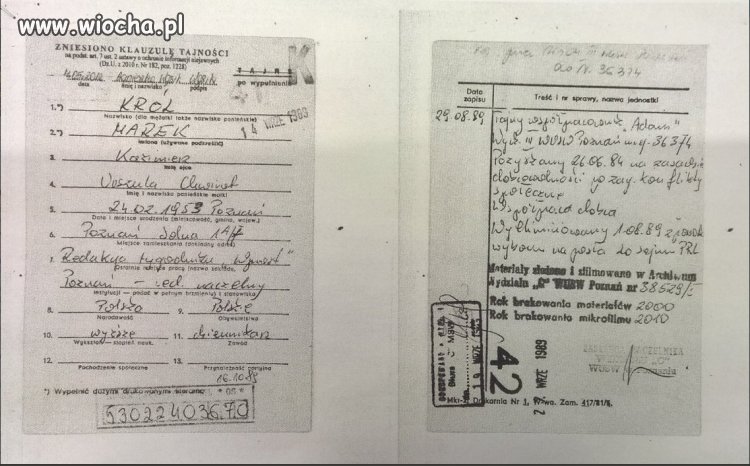 www.wiocha.pl
ZNIESIONO KLAUZULĘ TAJNOŚCI
na podst. art. 7 ust. 2 ustawy o ochronie informacji niejawnych
(Dz.U. z 2010 r. Nr 182, poz. 1228)
TAJNE
K
data imię i nazwisko podpis
po wypełnieniu
1.*) KRÓL
Nazwisko (dla mężatki także nazwisko panieńskie)
14 WRZE 1989
2.*) MAREK
Imiona (używane podkreślić)
3. Kazimierz
Imię ojca
4. Urszula
Imię i nazwisko panieńskie matki
5. 24.02.1953 Poznań
Data i miejsce urodzenia (miejscowość, gmina, wojew.)
6. Poznań Solna
Miejsce zamieszkania (dokładny adres)
7. Redakcja tygodnika "Wprost"
Ostatnie miejsce pracy (nazwa zakładu,
Poznań - red. naczelny
instytucji — podać w pełnym brzmieniu) i stanowisko
8. Polska 9. Polskie
Narodowość Obywatelstwo
10. wyższe 11. dziennikarz
Wykształc.—stopień nauk. Zawód
12. 13.
Pochodzenie społeczne Przynależność partyjna
16.10.89
*) Wypełnić dużymi drukowanymi literami
53022403670
Do Nr 36374
Data zapisu Treść i nr sprawy, nazwa jednostki
29.08.89 Tajny współpracownik "Adam"
Wydz. III WUSW Poznań nr 36374
Pozyskany 26.06.84 na zasadzie
dobrowolności po zag. konflikty
społeczne
Współpraca dobra
Wyeliminowany 1.08.89 z powodu
wyboru na posła do sejmu PRL
Materiały złożono i sfilmowano w Archiwum
Wydziału „C" WUSW Poznań nr 38529/I
Rok brakowania materiałów 2000
Rok brakowania mikrofilmu 2010
Biura "C" MSW
19 WRZE 1989
42
WRZE 1989
Mkr-2 Drukarnia Nr 1, W-wa. Zam. 417/81/K.